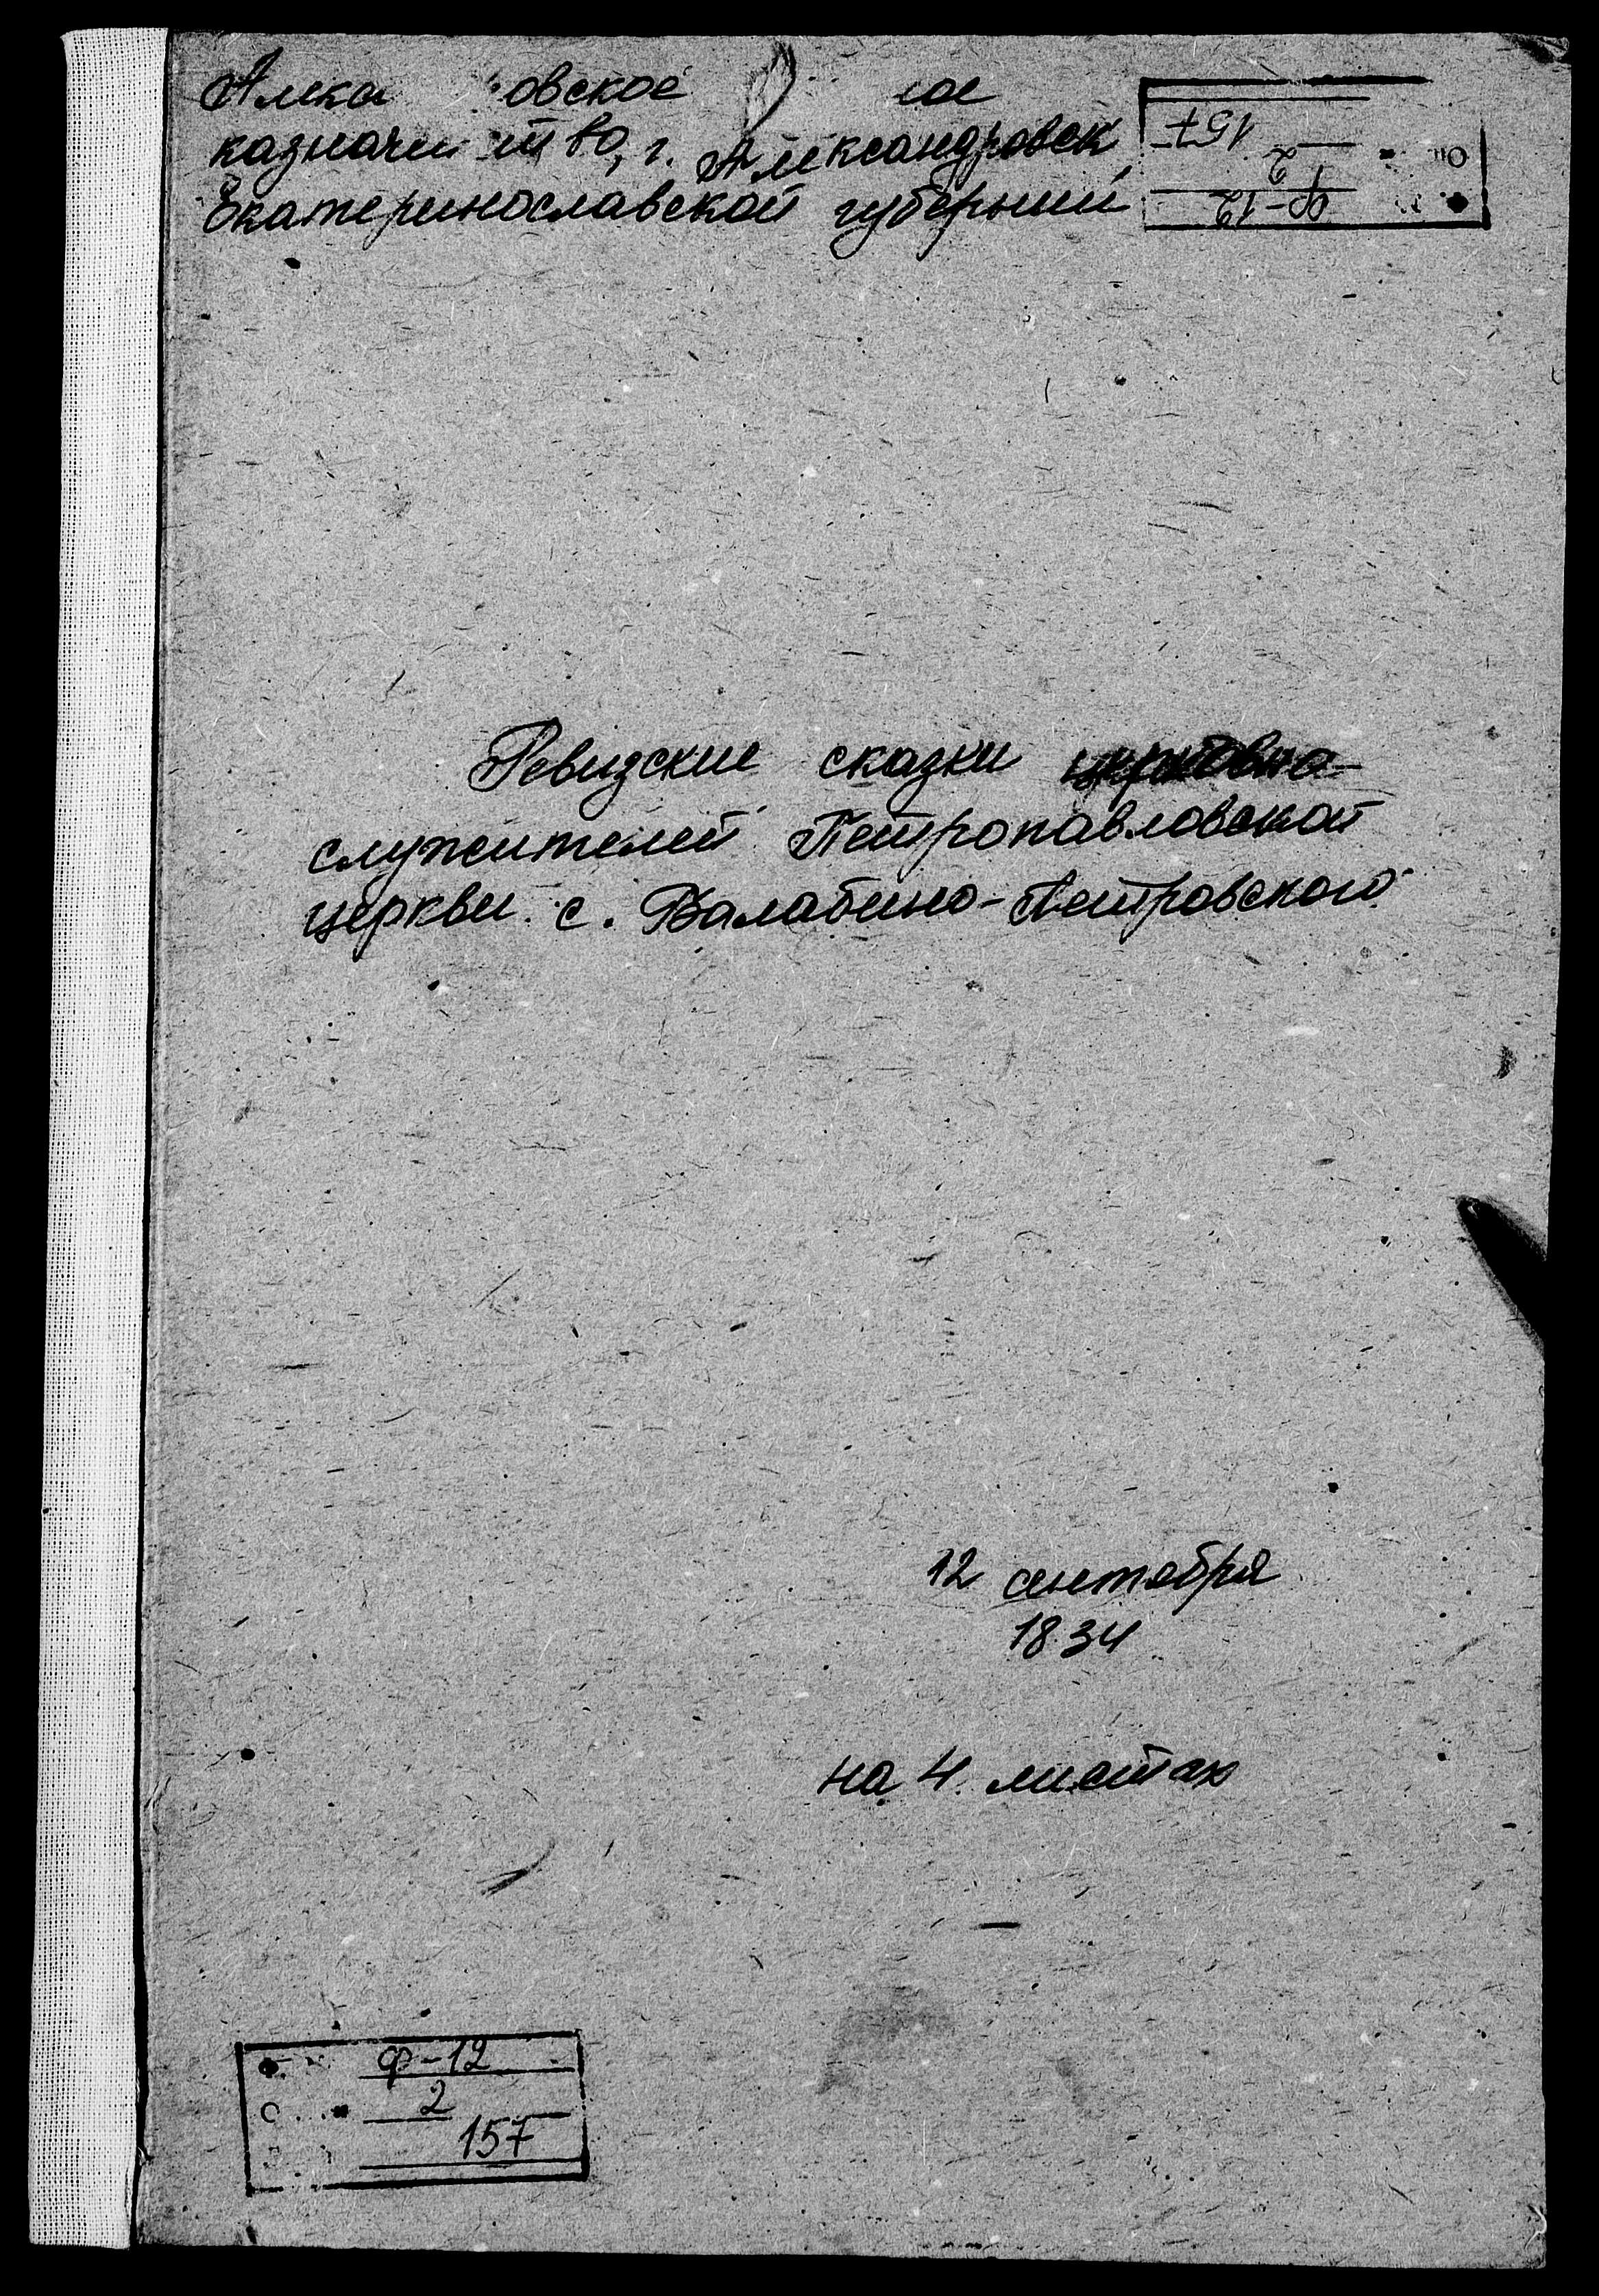 казначейство, г. Александровск
Екатеринославской губернии
Ф-12
2
157
Ревизские сказки церковно-
служителей Петропавловской
церкви с. Балабино-Петровского
12 сентября
1834
на 4 листах
Ф-12
2
157